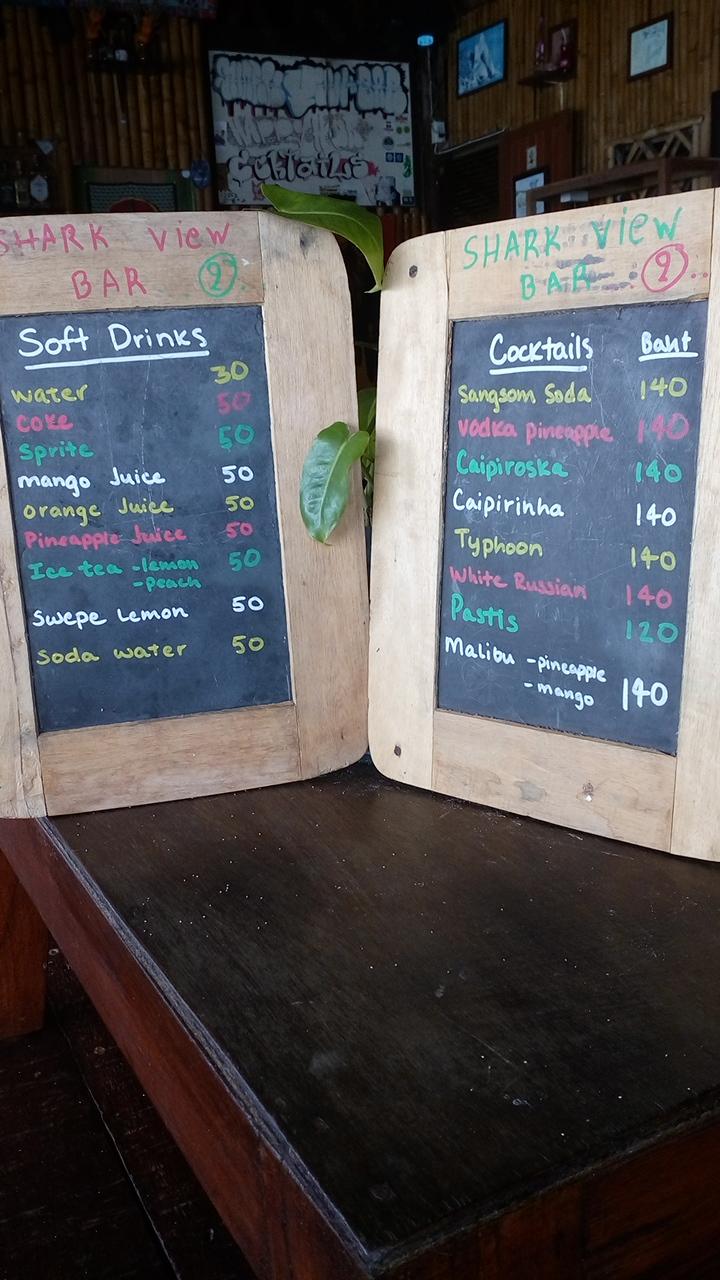 SHARK VIEW
BAR 2
Soft Drinks
water 30
coke 50
Sprite 50
mango Juice 50
orange Juice 50
Pineapple Juice 50
Ice tea - lemon 50
- peach
Swepe Lemon 50
Soda water 50
SHARK VIEW
BAR 2
Cocktails Baht
Sangsom Soda 140
Vodka pineapple 140
Caipiroska 140
Caipirinha 140
Typhoon 140
White Russian 140
Pastis 120
Malibu - pineapple
- mango 140